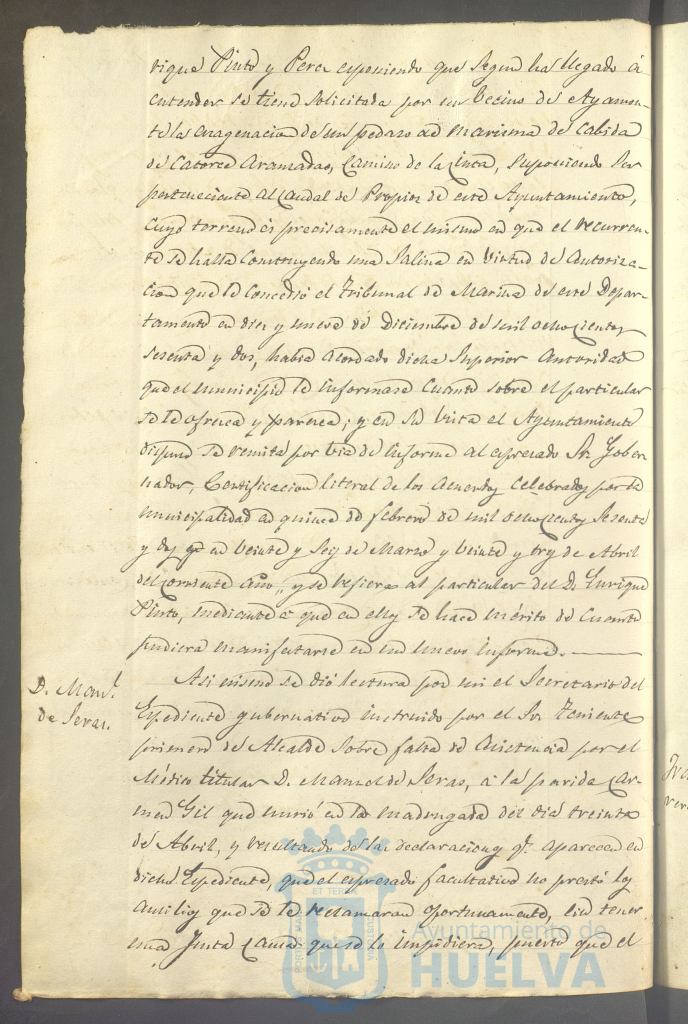 rique Pinto y Perez esponiendo que segun ha llegado á
entender se tiene solicitada por un Vecino de Ayamon-
te la enagenacion de un pedazo de marisma de cabida
de Catorce aranzadas, Camino de la Cinta, suponiendo ser
perteneciente al Caudal de Propios de este Ayuntamiento,
cuyo terreno es precisamente el mismo en que el recurren-
te se halla construyendo una Salina en virtud de autoriza-
cion que le concedió el Tribunal de Marina de este Depar-
tamento en diez y nueve de Diciembre de mil ochocientos
sesenta y dos, habia acordado dicha Superior autoridad
que el municipio le informase cuanto sobre el particular
se le ofrezca y parezca; y en su vista el Ayuntamiento
dispuso se remita por via de informe al espresado Sr. Gober-
nador, Certificacion literal de los acuerdos celebrados por la
municipalidad en quince de febrero de mil ochocientos sesenta
y dos y en veinte y seis de Marzo y veinte y tres de Abril
del corriente año, y se refieren al particular del D. Enrique
Pinto, mediante á que en ellos se hace mérito de cuanto
pudiera manifestarse en un nuevo informe.
D. Man.l
de Seras.
Asi mismo se dió lectura por mi el Secretario del
Espediente gubernativo instruido por el Sr. Teniente
primero de Alcalde sobre falta de asistencia por el
Médico titular D. Manuel de Seras, á la parida Car-
men Gil que murió en la madrugada del dia treinta
de Abril, y resultando de las declaraciones q.e aparecen en
dicho Espediente, que el espresado facultativo no prestó los
ausilios que se le reclamaran oportunamente, sin tener
una justa causa que se lo impidiera, puesto que el
PORTUS MARIS ET TERRÆ CUSTODIA
Ayuntamiento de
HUELVA